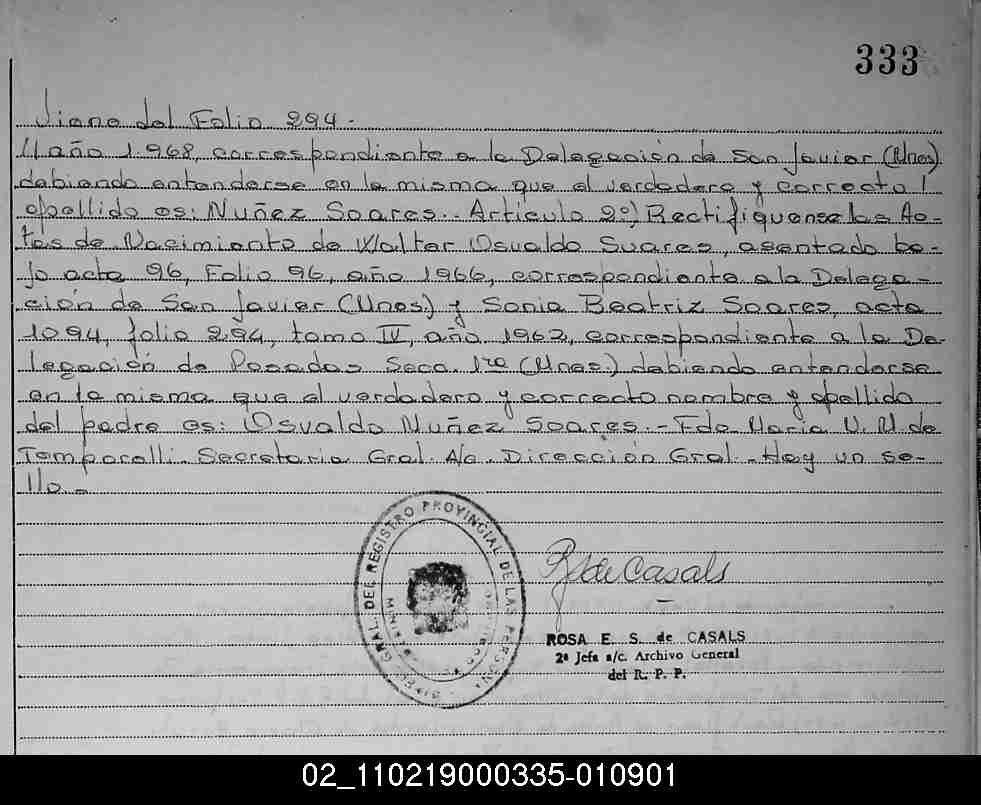 333
Viene del Folio 294.-
II año 1.968, correspondiente a la Delegación de San Javier (Mnes)
debiendo entenderse en la misma que el verdadero y correcto
apellido es: Nuñez Soares.- Artículo 2º) Rectifíquense las Ac-
tas de Nacimiento de Walter Osvaldo Suares, asentado ba-
jo acta 96, Folio 96, año 1966, correspondiente a la Delega-
ción de San Javier (Mnes.) y Sonia Beatriz Soares, acta
1094, folio 294, tomo IV, año 1962, correspondiente a la De-
legación de Posadas Secc. 1ra (Mnes.) debiendo entenderse
en la misma que el verdadero y correcto nombre y apellido
del padre es: Osvaldo Nuñez Soares.- Fdo María V. M. de
Temporelli. Secretaria Gral. A/c. Dirección Gral.- Hay un se-
llo.-
GRAL. DEL REGISTRO PROVINCIAL DE LAS PERSONAS
R S de Casals
ROSA E. S. de CASALS
2ª Jefa a/c. Archivo General
del R. P. P.
02_110219000335-010901